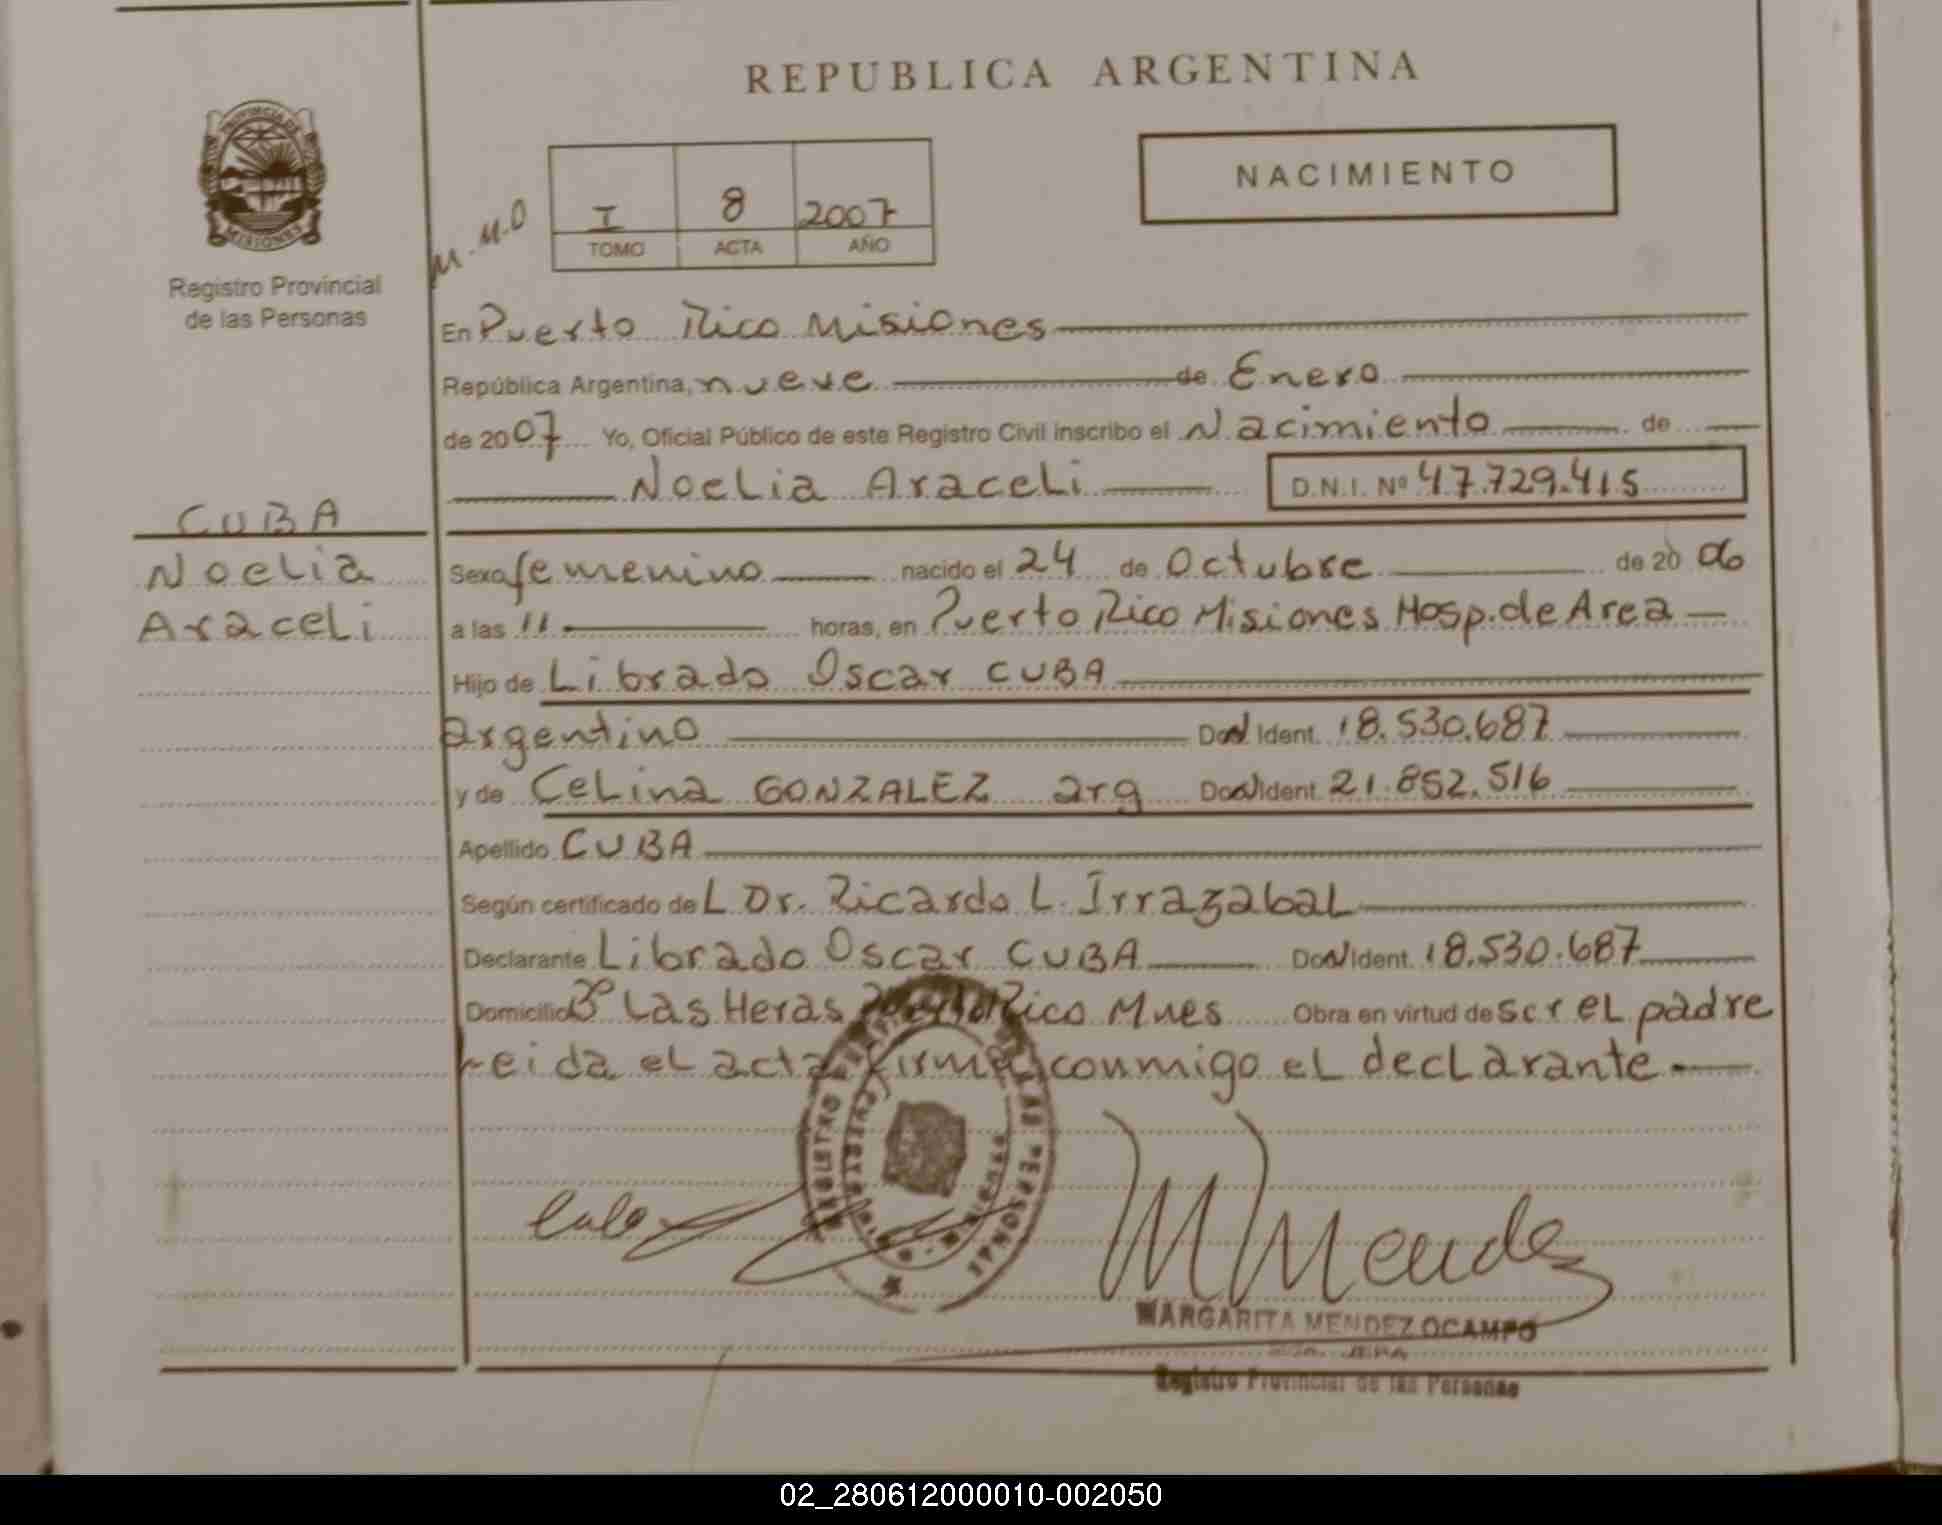 REPUBLICA ARGENTINA
PROVINCIA DE
MISIONES
Registro Provincial
de las Personas
M.M.O
I 8 2007
TOMO ACTA AÑO
NACIMIENTO
En Puerto Rico Misiones
República Argentina, nueve de Enero
de 2007 Yo, Oficial Público de este Registro Civil inscribo el Nacimiento de
Noelia Araceli D.N.I. Nº 47.729.415
CUBA
Noelia
Araceli
Sexo femenino nacido el 24 de Octubre de 20 06
a las 11 horas, en Puerto Rico Misiones Hosp. de Area
Hijo de Librado Oscar CUBA
argentino Ident. 18.530.687
y de Celina GONZALEZ arg Ident. 21.852.516
Apellido CUBA
Según certificado de L Dr. Ricardo L. Irrazabal
Declarante Librado Oscar CUBA Ident. 18.530.687
Domicilio Bº Las Heras Puerto Rico Mnes Obra en virtud de ser el padre
Leida el acta firma conmigo el declarante
REGISTRO DE LAS PERSONAS
MMendez
MARGARITA MENDEZ OCAMPO
JEFA
Registro Provincial de las Personas
02_280612000010-002050